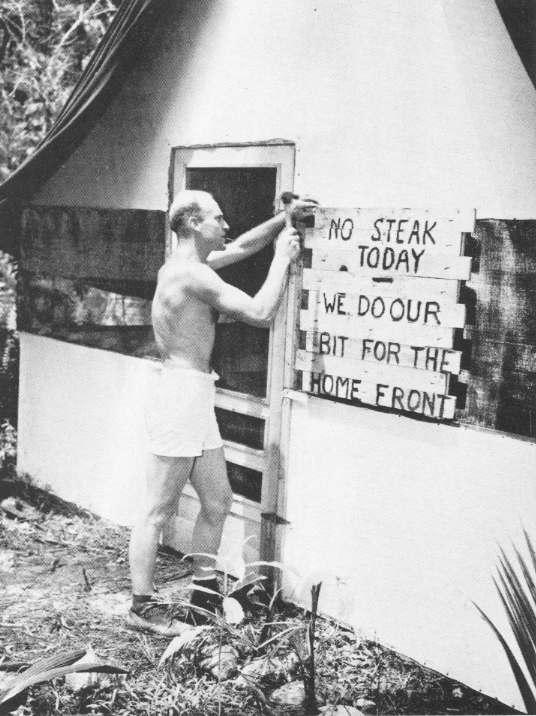 NO STEAK
TODAY
WE DO OUR
BIT FOR THE
HOME FRONT